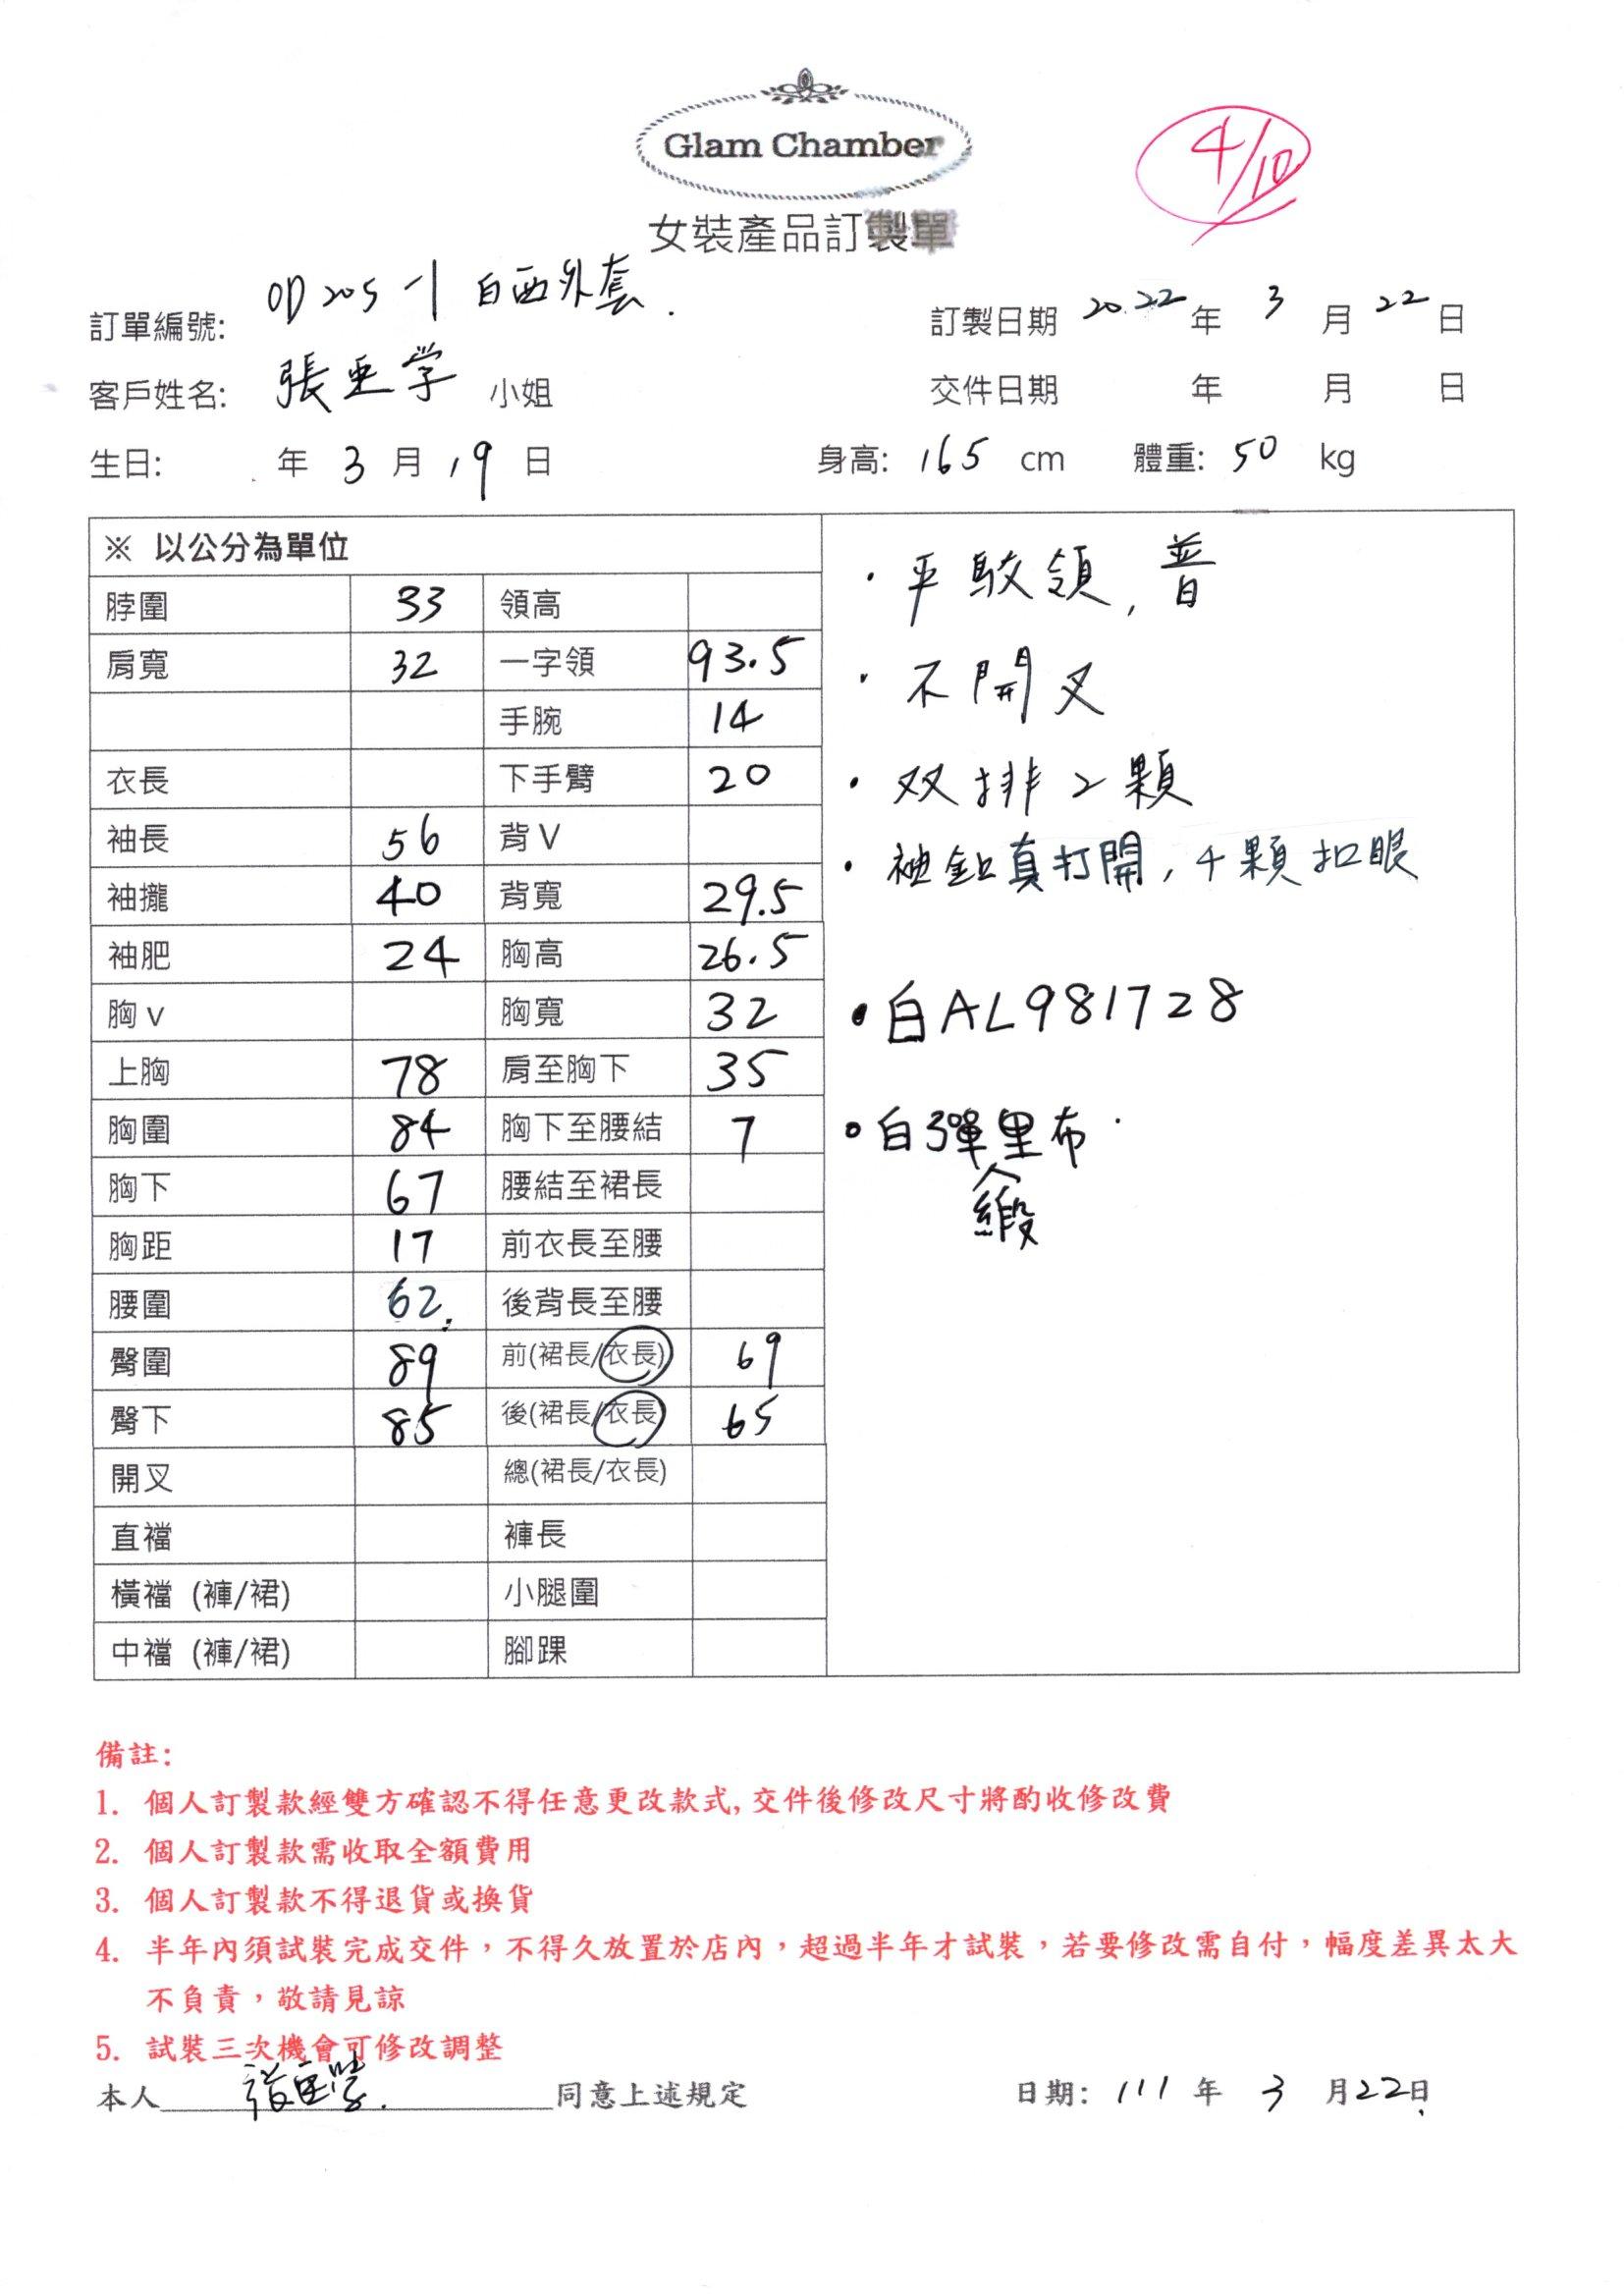 Glam Chamber
4/10
女裝產品訂製單
訂單編號: OD205-1 白西外套.
訂製日期 2022 年 3 月 22 日
客戶姓名: 張亜学 小姐
交件日期 年 月 日
生日: 年 3 月 19 日 身高: 165 cm 體重: 50 kg
※ 以公分為單位
脖圍 33 領高
肩寬 32 一字領 93.5
手腕 14
衣長 下手臂 20
袖長 56 背V
袖攏 40 背寬 29.5
袖肥 24 胸高 26.5
胸v 胸寬 32
上胸 78 肩至胸下 35
胸圍 84 胸下至腰結 7
胸下 67 腰結至裙長
胸距 17 前衣長至腰
腰圍 62. 後背長至腰
臀圍 89 前(裙長/衣長) 69
臀下 85 後(裙長/衣長) 65
開叉 總(裙長/衣長)
直襠 褲長
橫襠 (褲/裙) 小腿圍
中襠 (褲/裙) 腳踝
・平駁領, 普
・不開叉
・双排2顆
・袖釦真打開, 4顆扣眼
・白AL981728
・白彈里布
緞
備註:
1. 個人訂製款經雙方確認不得任意更改款式, 交件後修改尺寸將酌收修改費
2. 個人訂製款需收取全額費用
3. 個人訂製款不得退貨或換貨
4. 半年內須試裝完成交件，不得久放置於店內，超過半年才試裝，若要修改需自付，幅度差異太大
不負責，敬請見諒
5. 試裝三次機會可修改調整
本人 同意上述規定 日期: 111 年 3 月 22 日